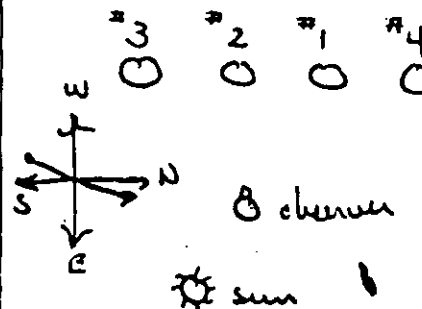 #3 #2 #1 #4
W
S N
E
observer
sun